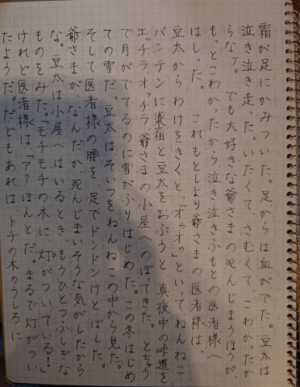 霜が足にかみついた。足からは血がでた。豆太は
泣き泣き走った。いたくて、さむくて、こわかったか
らなァ。でも大好きな爺さまの死んじまうほうが、
も、とこわかったから泣き泣きふもとの医者様へ
はしった。これもとしより爺さまの医者様は、
豆太からわけをきくと、「オゥオゥ」といってねんねこ
バンテンに薬箱と豆太をおぶうと、真夜中の峠道を
エッチラオッチラ爺さまの小屋へのぼってきた。とちゅう
で月がでてるのに雪がふりはじめた。この冬はじめ
ての雪だ。豆太はそいつをねんねこの中から見た。
そして医者様の腰を足でドンドンけとばした。
爺さまがなんだか死んじまいそうな気がしたから
な。豆太は小屋へはいるとき、もうひとつふしぎな
ものをみた。「モチモチの木に灯がついている!」
けれど医者様は「ア?ほんとだ。まるで灯がつい
たようだ。だどもあれはトチの木のうしろに